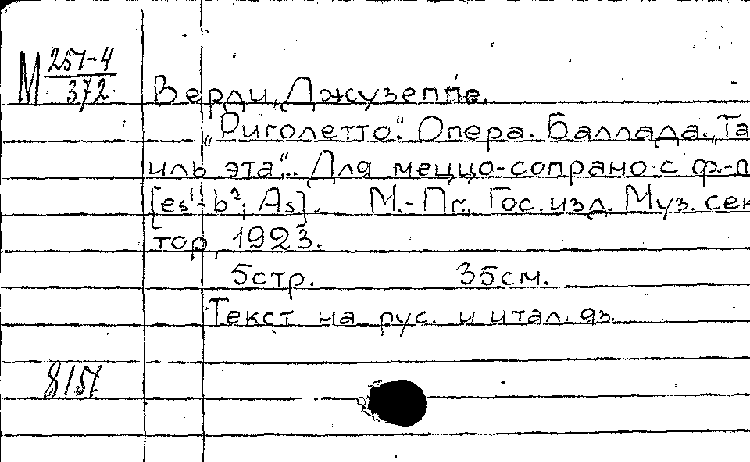 М 257-4
372
Верди, Джузеппе.
„Риголетто". Опера. Баллада. „Та
иль эта". Для меццо-сопрано с ф-п
[es¹-b²; As]. М.-Пг., Гос. изд. Муз. сек
тор, 1923.
5стр. 35см.
Текст на рус. и итал. яз.
8157